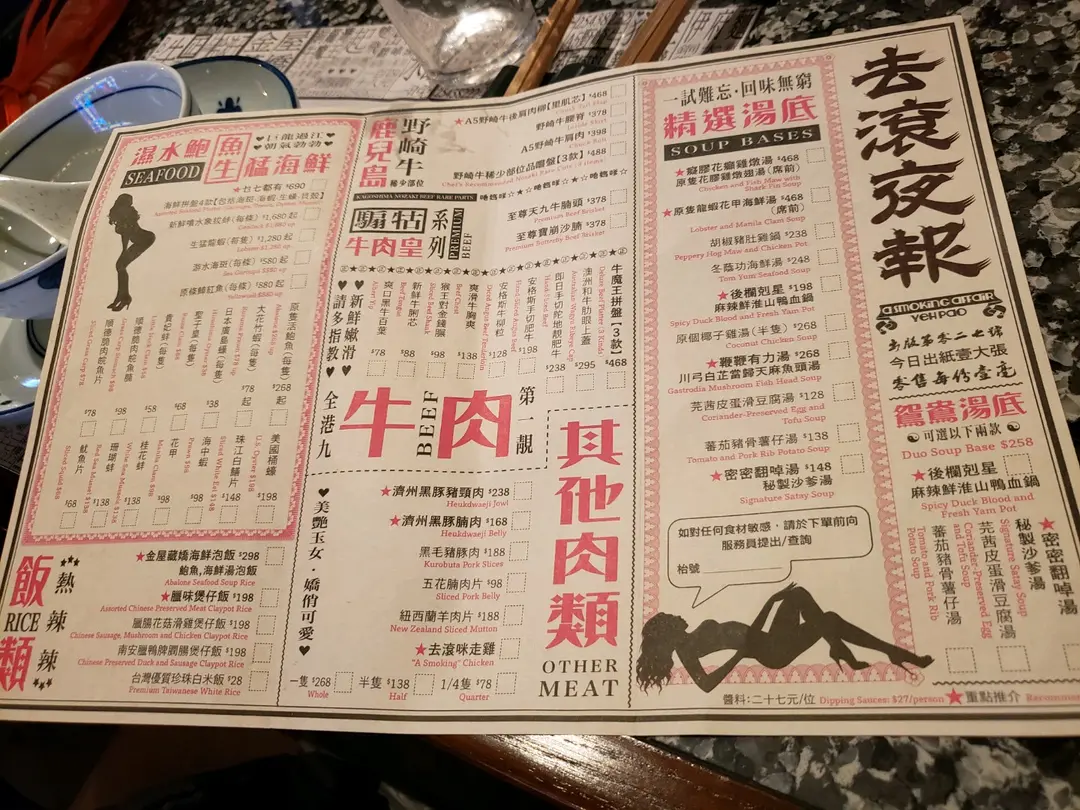 去滾夜報
a SMOKING AFFAIR
YEH PAO
出版第零二七號
今日出紙壹大張
零售每份壹毫
鴛鴦湯底
可選以下兩款
Duo Soup Base $258
★後欄剋星
麻辣鮮淮山鴨血鍋
Spicy Duck Blood and
Fresh Yam Pot
★密密翻啅湯
秘製沙爹湯
Signature Satay Soup
芫茜皮蛋滑豆腐湯
Coriander-Preserved Egg
and Tofu Soup
蕃茄豬骨薯仔湯
Tomato and Pork Rib
Potato Soup
一試難忘·回味無窮
精選湯底
SOUP BASES
★癡膠花癲雞燉湯 $468
原隻花膠雞燉翅湯（席前）
Chicken and Fish Maw with
Shark Fin Soup
★原隻龍蝦花甲海鮮湯 $468
（席前）
Lobster and Manila Clam Soup
胡椒豬肚雞鍋 $238
Peppery Hog Maw and Chicken Pot
冬蔭功海鮮湯 $248
Tom Yum Seafood Soup
★後欄剋星 $198
麻辣鮮淮山鴨血鍋
Spicy Duck Blood and Fresh Yam Pot
原個椰子雞湯（半隻） $268
Coconut Chicken Soup
★鞭鞭有力湯 $268
川弓白芷當歸天麻魚頭湯
Gastrodia Mushroom Fish Head Soup
芫茜皮蛋滑豆腐湯 $128
Coriander-Preserved Egg and
Tofu Soup
蕃茄豬骨薯仔湯 $138
Tomato and Pork Rib Potato Soup
★密密翻啅湯 $148
秘製沙爹湯
Signature Satay Soup
如對任何食材敏感，請於下單前向
服務員提出/查詢
枱號
醬料：二十七元/位 Dipping Sauces: $27/person ★重點推介
鹿兒島
野崎牛
稀少部位
KAGOSHIMA NOZAKI BEEF RARE PARTS
★A5野崎牛後肩肉柳【里肌芯】 $468
野崎牛腰脊 $378
A5野崎牛肩肉 $398
Chuck Roll
野崎牛稀少部位品嚐盤【3款】 $488
騸牯
牛肉皇
系列
PREMIUM BEEF
至尊天九牛腩頭 $378
Premium Beef Brisket
至尊寶崩沙腩 $378
Premium Butterfly Beef Brisket
牛魔王拼盤【3款】
$468
澳洲和牛肋眼上蓋
$295
即日手切𩠌地靚肥牛
$238
安格斯手切肥牛
$198
安格斯牛柳粒
$128
爽滑牛胸爽
Beef Chest
$138
猴王對金錢𦟌
Sliced Beef Shank
$98
新鮮牛脷芯
Beef Tongue
$88
爽口黑牛百葉
$78
♥新鮮嫩滑♥
♥請多指教♥
全港九
牛肉
BEEF
第
靚
♥美艷玉女·嬌俏可愛♥
其他肉類
OTHER
MEAT
★濟州黑豚豬頸肉 $238
Heukdwaeji Jowl
★濟州黑豚腩肉 $168
Heukdwaeji Belly
黑毛豬豚肉 $188
Kurobuta Pork Slices
五花腩肉片 $98
Sliced Pork Belly
紐西蘭羊肉片 $188
New Zealand Sliced Mutton
★去滾咪走雞
"A Smoking" Chicken
一隻 $268
Whole
半隻 $138
Half
1/4隻 $78
Quarter
濕水鮑魚
SEAFOOD
生猛海鮮
♥巨龍過江♥
朝氣勃勃
★乜七都有 $690
新鮮噴水象拔蚌（每條） $1,680 起
生猛龍蝦（每隻） $1,280 起
Lobster $1,280 up
游水海斑（每條） $580 起
Sea Garoupa $580 up
原條鱆魟魚（每條） $880 起
原隻活鮑魚（每隻）
$268 起
大花竹蝦（每隻）
$78 起
日本廣島蠔（每隻）
$38
聖子皇（每隻）
$68
貴妃蚌（每隻）
$58
順德脆肉鯇魚腩
$98
順德脆肉鯇魚片
$78
美國桶蠔
U.S. Oyster $198
$198
珠江白鱔片
Sliced White Eel $148
$148
海中蝦
Prawn $98
$98
花甲
Manila Clam $98
$98
桂花蚌
$138
珊瑚蚌
$138
魷魚片
Sliced Squid $68
$68
飯類
RICE
熱辣辣
★金屋藏嬌海鮮泡飯 $298
鮑魚,海鮮湯泡飯
Abalone Seafood Soup Rice
★臘味煲仔飯 $198
Assorted Chinese Preserved Meat Claypot Rice
臘腸花菇滑雞煲仔飯 $198
Chinese Sausage, Mushroom and Chicken Claypot Rice
南安臘鴨脾潤腸煲仔飯 $198
Chinese Preserved Duck and Sausage Claypot Rice
台灣優質珍珠白米飯 $28
Premium Taiwanese White Rice